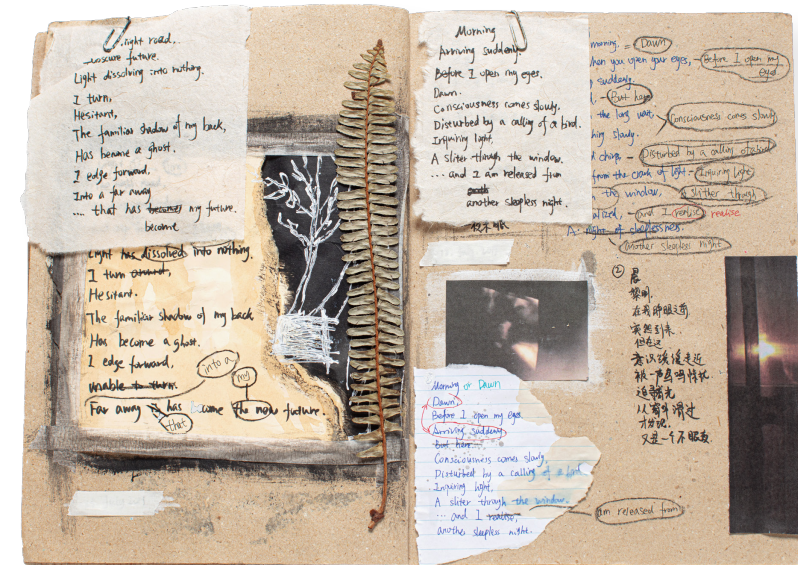 right road,
obscure future.
Light dissolving into nothing.
I turn,
Hesitant,
The familiar shadow of my back,
Has become a ghost.
I edge forward,
Into a far away
.... that has become my future.
become
Light has dissolved into nothing.
I turn around,
Hesitant.
The familiar shadow of my back
Has become a ghost.
I edge forward,
into a
unable to turn.
my
Far away is has come the new future.
that
Morning
Arriving suddenly.
Before I open my eyes.
Dawn.
Consciousness comes slowly.
Disturbed by a calling of a bird.
Inquiring light,
A sliter through the window.
... and I am released from
another sleepless night.
夜不眠
morning. = Dawn
hen you open your eyes, - Before I open my eyes
suddenly.
But here
the long wait, Consciousness comes slowly
hing slowly.
chirps. - Disturbed by a calling of a bird
from the crack of light - Inquiring light
the window, a slither though
alized, - and I realise realise
A: night of sleeplessness.
another sleepless night
②
晨
黎明.
在我睁眼之前
突然到来.
但在这
意识缓缓走近
被一声鸟鸣惊扰
追寻光
从窗中滑过
又是一个不眠夜
Morning or Dawn
Dawn
Before I open my eyes.
Arriving suddenly
but here
Consciousness comes slowly,
Disturbed by a calling of a bird
Inquiring light,
A sliter through the window.
... and I realise,
am released from
another sleepless night.